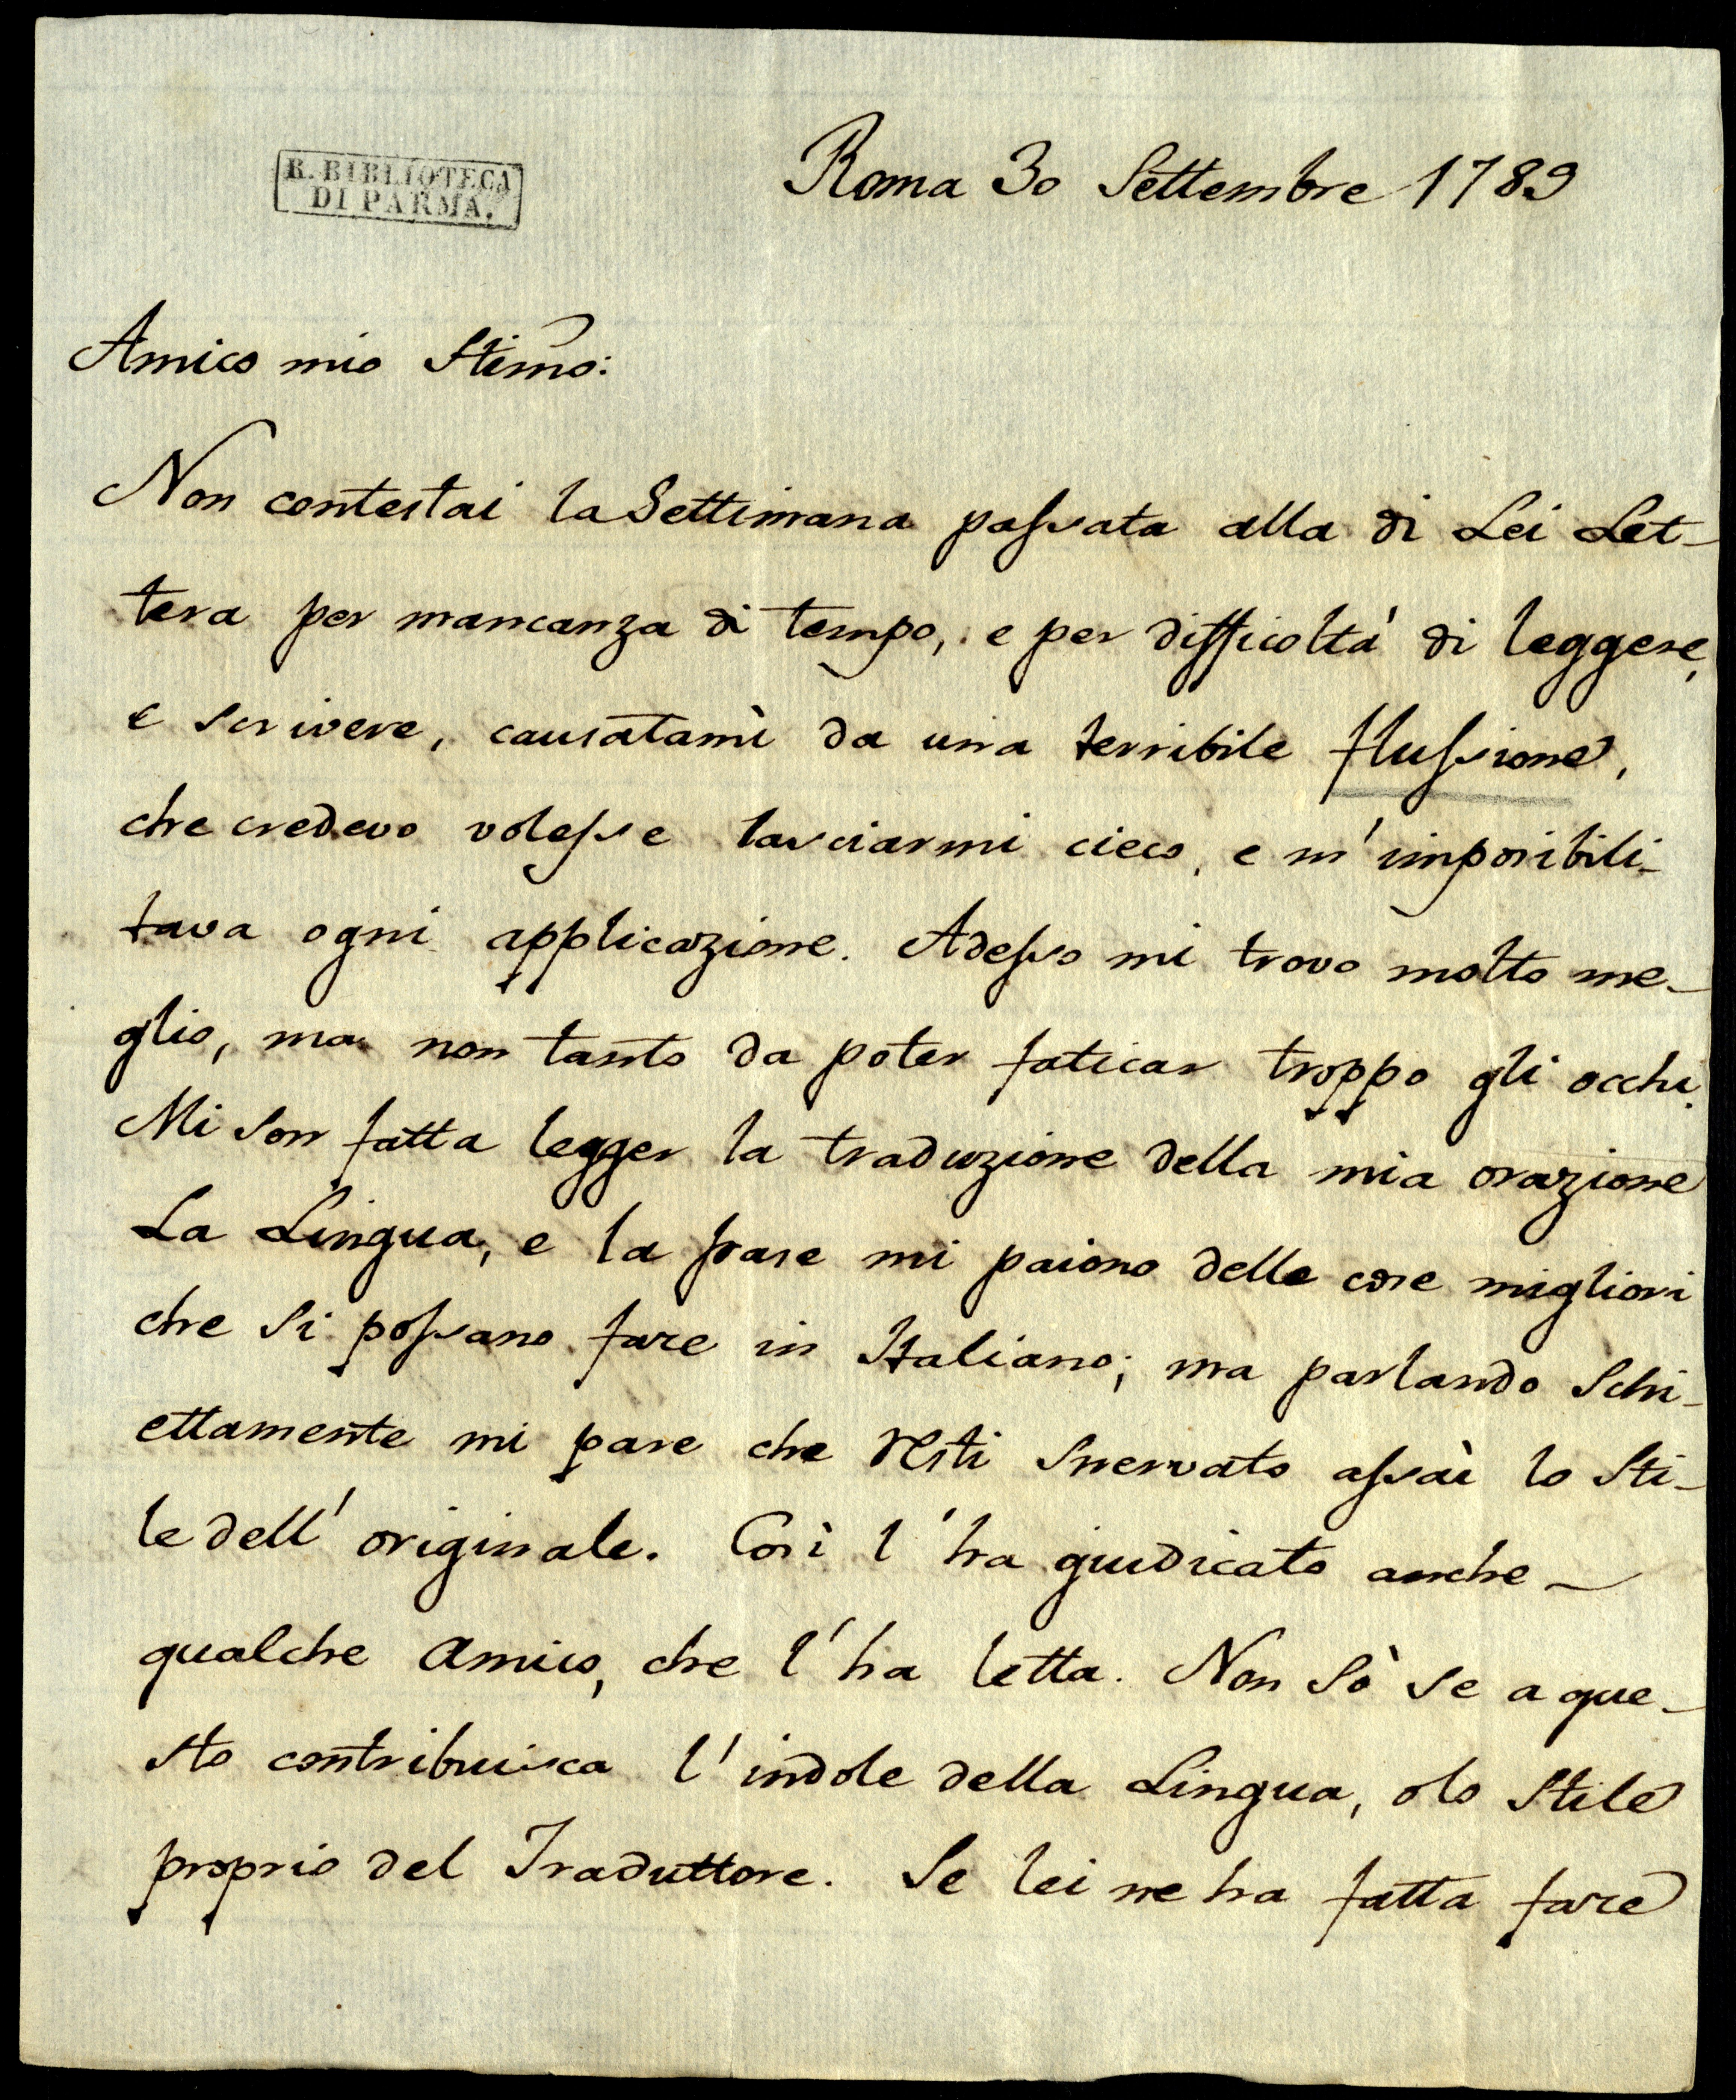 R. BIBLIOTECA
DI PARMA.
Roma 30 Settembre 1789
Amico mio Stimo:
Non contestai la Settimana passata alla di Lei Let-
tera per mancanza di tempo, e per difficoltà di leggere,
e scrivere, causatami da una terribile flussione,
che credevo volesse lasciarmi cieco, e m'imposibili-
tava ogni applicazione. Adesso mi trovo molto me-
glio, ma non tanto da poter faticar troppo gli occhi.
Mi son fatta legger la traduzione della mia orazione
La Lingua, e la frase mi paiono delle cose migliori
che si possano fare in Italiano; ma parlando schi-
ettamente mi pare che resti snervato assai lo sti-
le dell'originale. Così l'ha giudicato anche
qualche amico, che l'ha letta. Non sò se a que-
sto contribuisca l'indole della Lingua, o lo stile
proprio del Traduttore. Se lei ne ha fatta fare